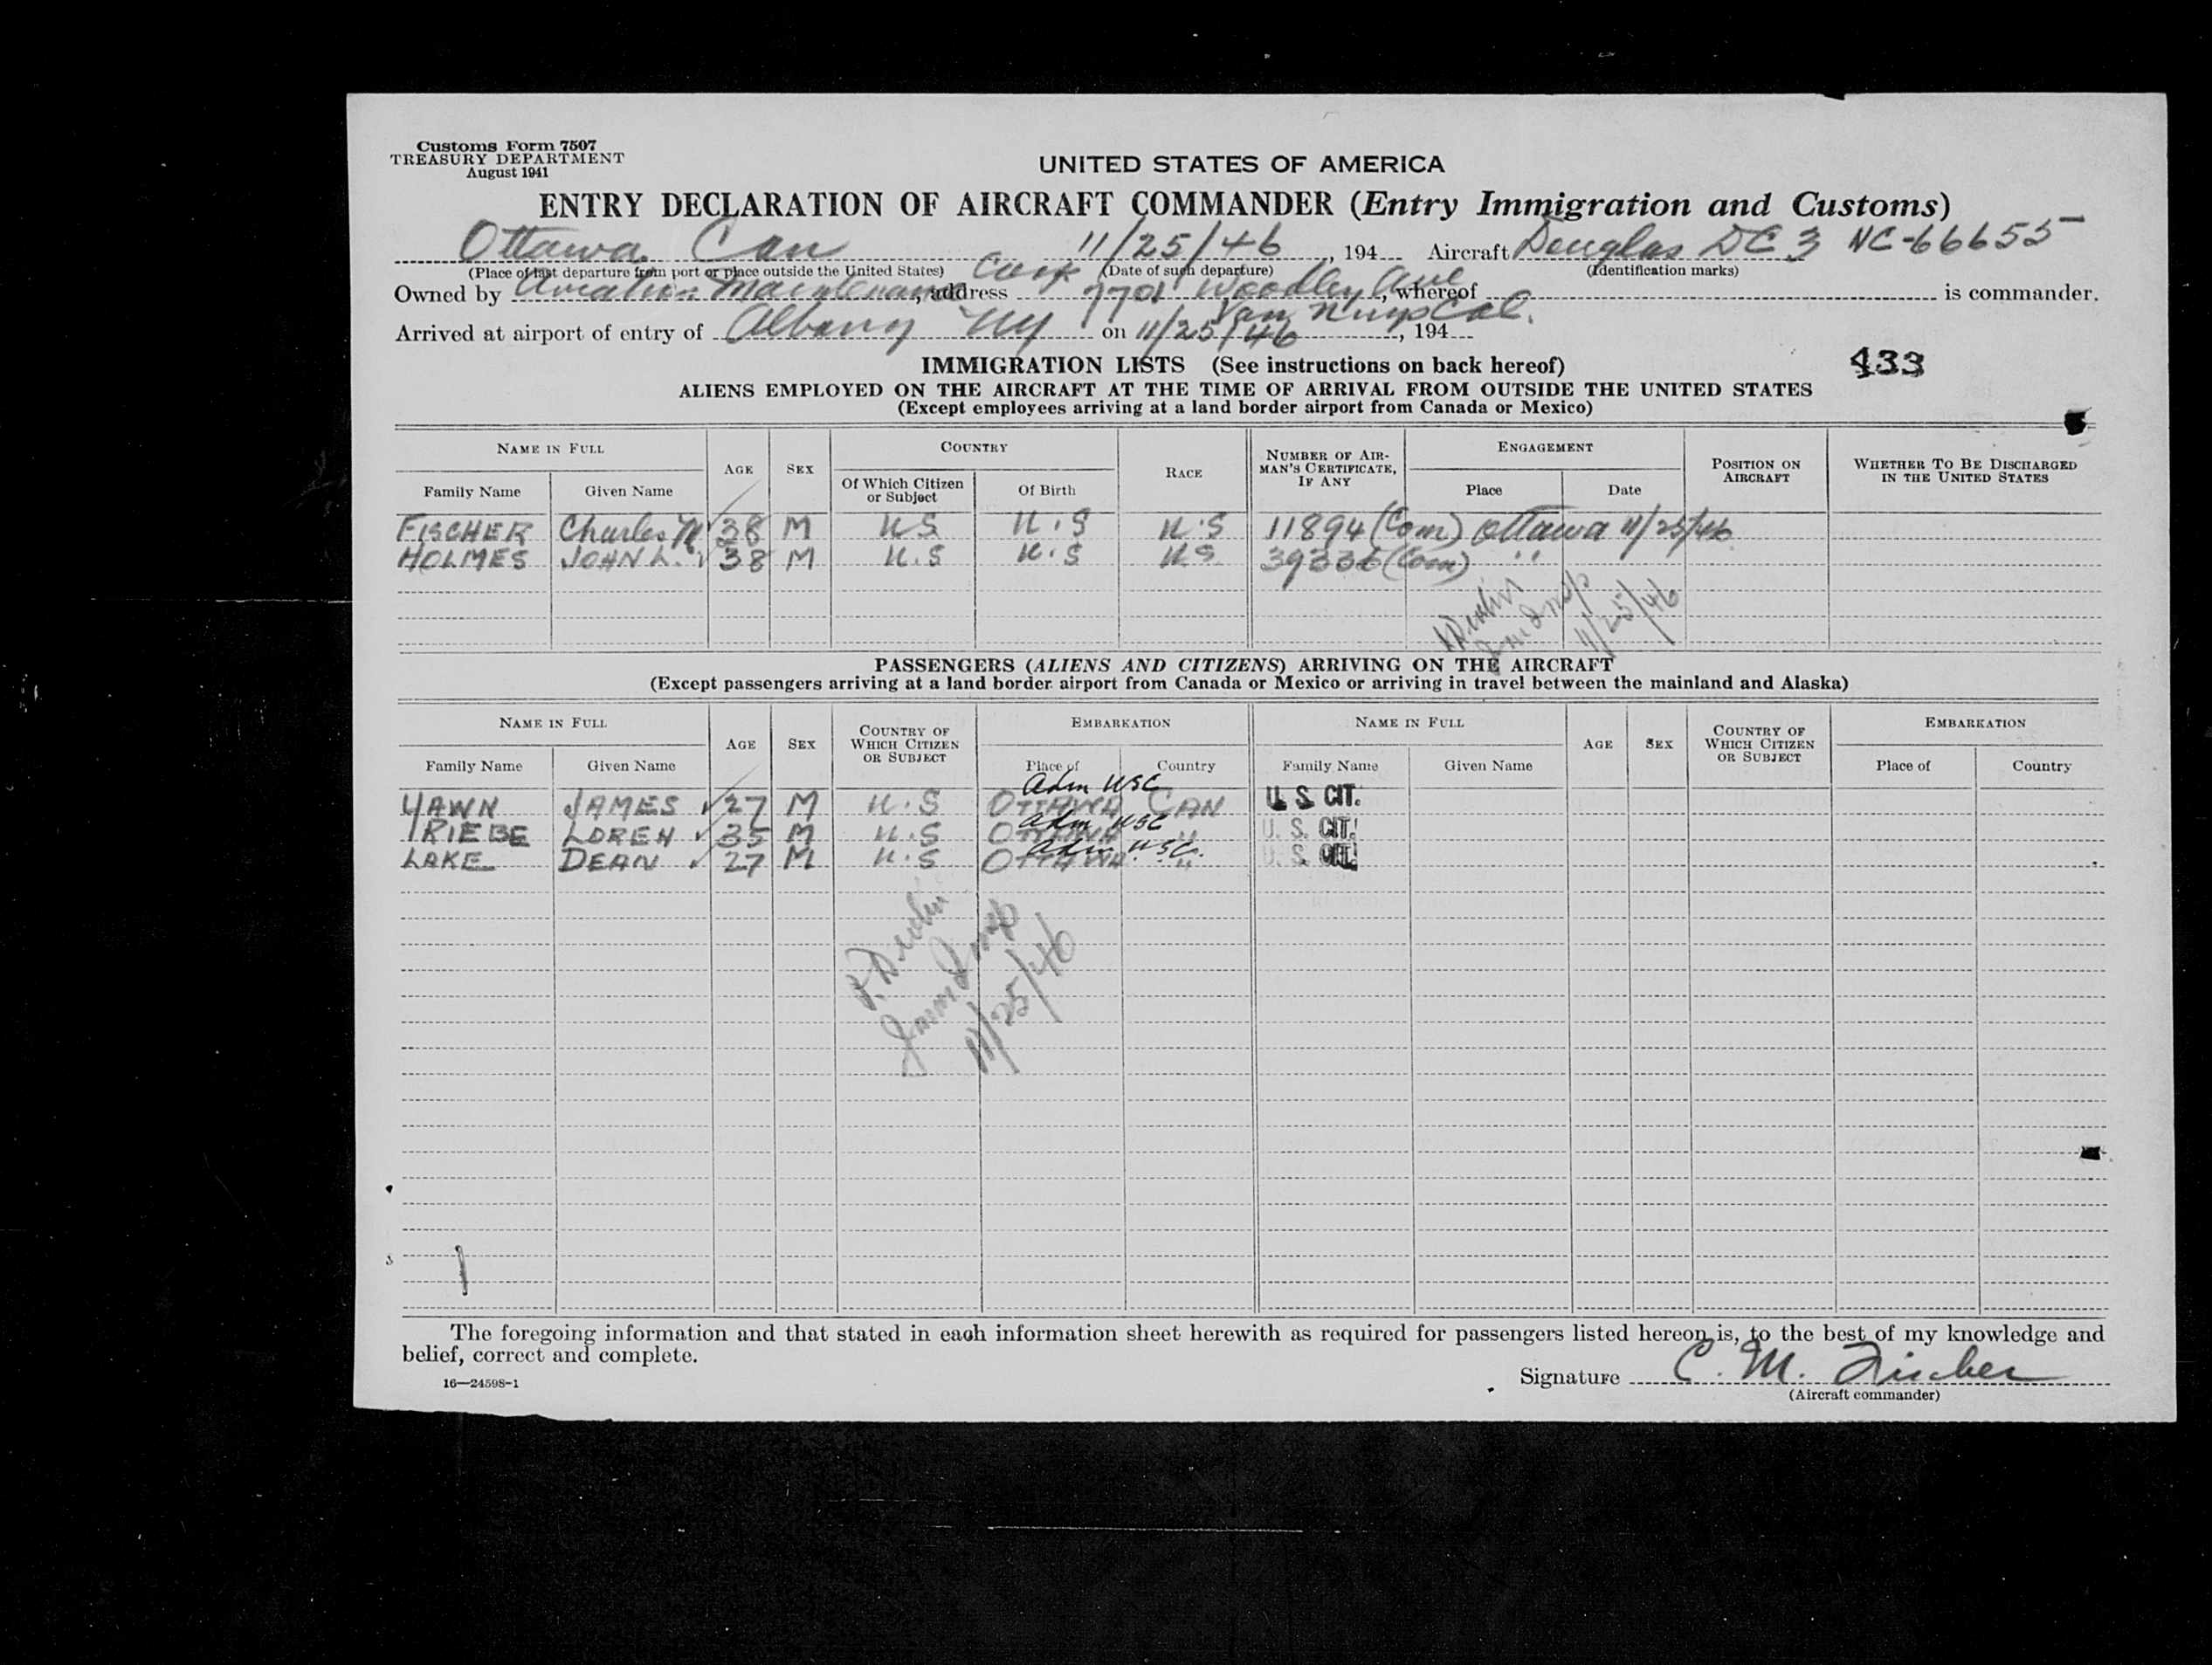 Customs Form 7507
TREASURY DEPARTMENT
August 1941
UNITED STATES OF AMERICA
ENTRY DECLARATION OF AIRCRAFT COMMANDER (Entry Immigration and Customs)
Ottawa Can 11/25/46, 194 Aircraft Douglas DC 3 NC-66655
(Place of last departure from port or place outside the United States) (Date of such departure) (Identification marks)
Owned by Aviation Maintenance Corp, address 7701 Woodley Ave, whereof is commander.
Van Nuys Cal.
Arrived at airport of entry of Albany NY on 11/25/46, 194
IMMIGRATION LISTS (See instructions on back hereof) 433
ALIENS EMPLOYED ON THE AIRCRAFT AT THE TIME OF ARRIVAL FROM OUTSIDE THE UNITED STATES
(Except employees arriving at a land border airport from Canada or Mexico)
NAME IN FULL AGE SEX COUNTRY RACE NUMBER OF AIRMAN'S CERTIFICATE, IF ANY ENGAGEMENT POSITION ON AIRCRAFT WHETHER TO BE DISCHARGED IN THE UNITED STATES
Family Name Given Name Of Which Citizen or Subject Of Birth Place Date
FISCHER Charles M 38 M US U.S U.S 11894 (Com) Ottawa 11/25/46
HOLMES JOHN L. 38 M U.S U.S US 39336 (Com) "
11/25/46
PASSENGERS (ALIENS AND CITIZENS) ARRIVING ON THE AIRCRAFT
(Except passengers arriving at a land border airport from Canada or Mexico or arriving in travel between the mainland and Alaska)
NAME IN FULL AGE SEX COUNTRY OF WHICH CITIZEN OR SUBJECT EMBARKATION NAME IN FULL AGE SEX COUNTRY OF WHICH CITIZEN OR SUBJECT EMBARKATION
Family Name Given Name Place of Country Family Name Given Name Place of Country
adm USC
YAWN JAMES 27 M U.S OTTAWA CAN U. S. CIT.
adm USC
RIEBE LOREN 35 M U.S OTTAWA " U. S. CIT.
adm USC.
LAKE DEAN 27 M U.S OTTAWA " U. S. CIT.
11/25/46
The foregoing information and that stated in each information sheet herewith as required for passengers listed hereon is, to the best of my knowledge and
belief, correct and complete.
Signature C. M. Fischer
16—24598-1
(Aircraft commander)